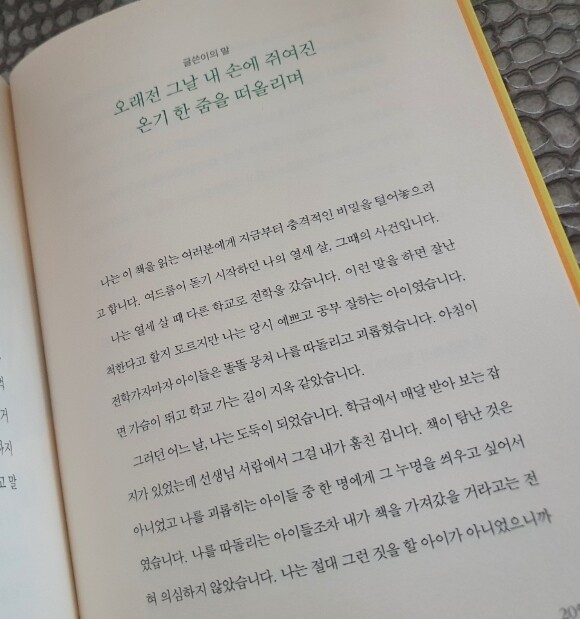 글쓴이의 말
오래전 그날 내 손에 쥐여진
온기 한 줌을 떠올리며
나는 이 책을 읽는 여러분에게 지금부터 충격적인 비밀을 털어놓으려
고 합니다. 여드름이 돋기 시작하던 나의 열세 살, 그때의 사건입니다.
나는 열세 살 때 다른 학교로 전학을 갔습니다. 이런 말을 하면 잘난
척한다고 할지 모르지만 나는 당시 예쁘고 공부 잘하는 아이였습니다.
전학가자마자 아이들은 똘똘 뭉쳐 나를 따돌리고 괴롭혔습니다. 아침이
면 가슴이 뛰고 학교 가는 길이 지옥 같았습니다.
그러던 어느 날, 나는 도둑이 되었습니다. 학급에서 매달 받아 보는 잡
지가 있었는데 선생님 서랍에서 그걸 내가 훔친 겁니다. 책이 탐난 것은
아니었고 나를 괴롭히는 아이들 중 한 명에게 그 누명을 씌우고 싶어서
였습니다. 나를 따돌리는 아이들조차 내가 책을 가져갔을 거라고는 전
혀 의심하지 않았습니다. 나는 절대 그런 짓을 할 아이가 아니었으니까